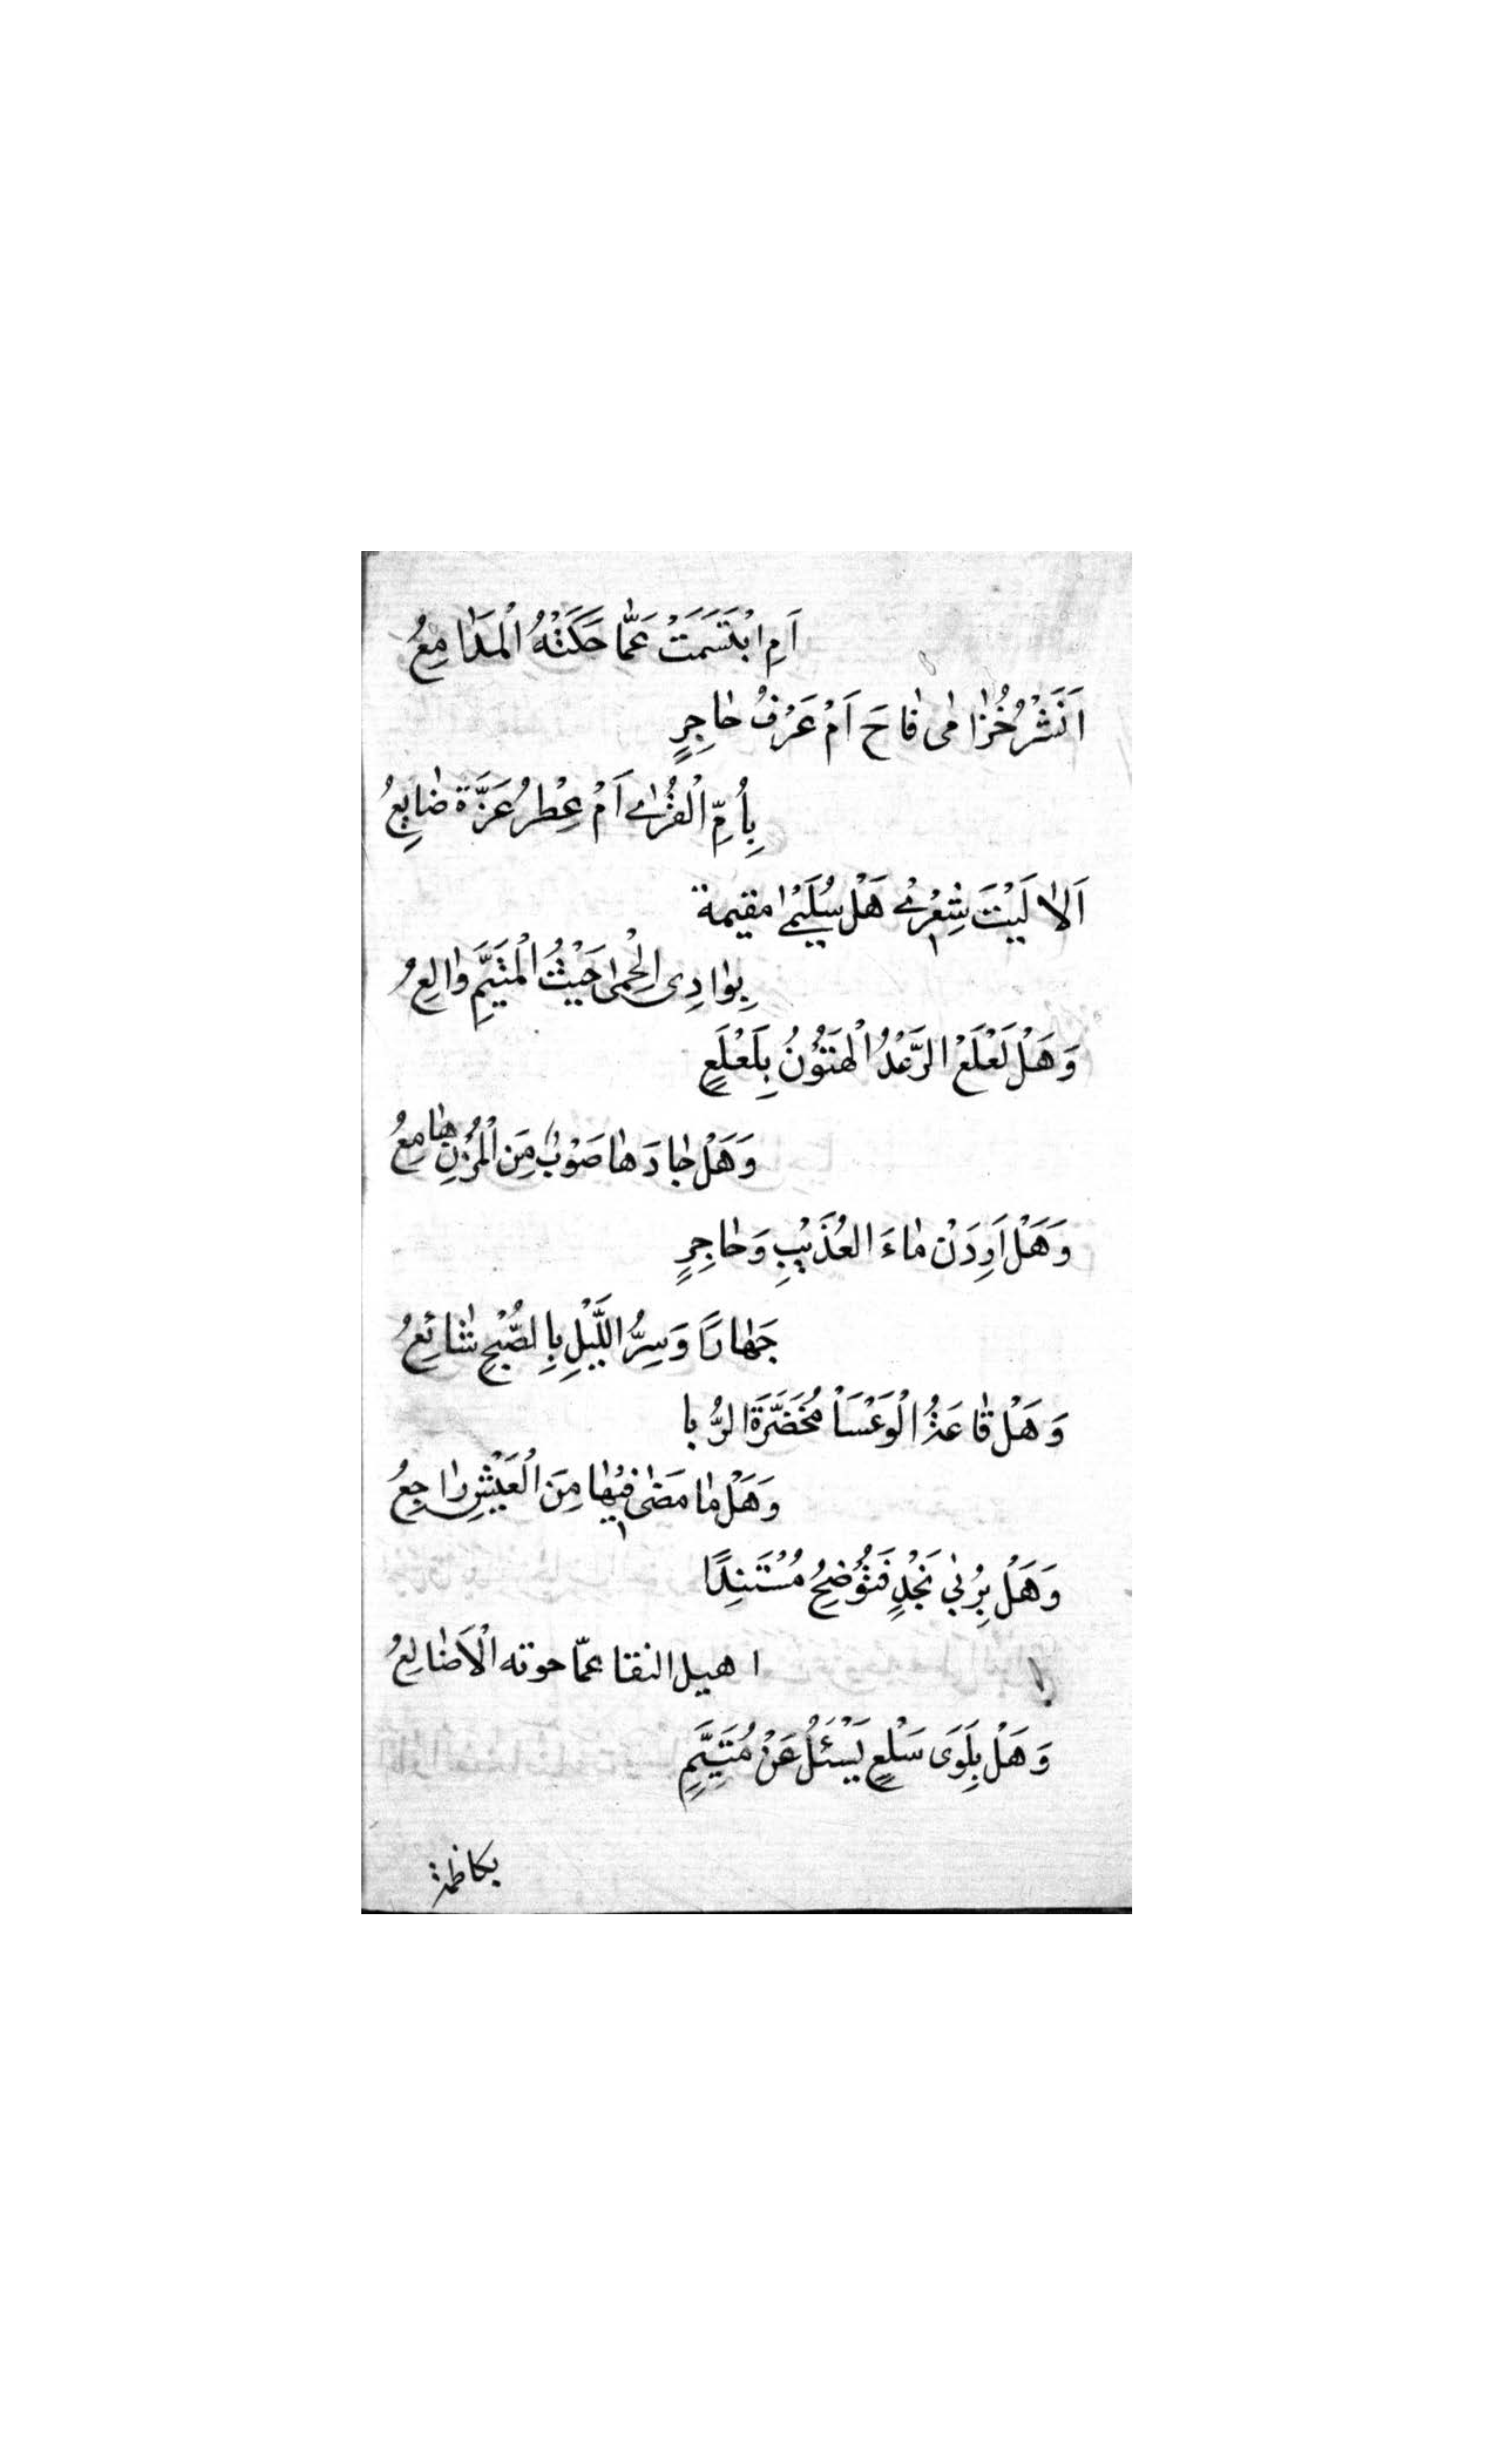 اَمِ ابْتَسَمَتْ عَمَّا حَكَتْهُ الْمَدَامِعُ
اَنَشْرُ خُزَامٰی فَاحَ اَمْ عَرْفُ حَاجِرٍ
بِاُمِّ الْقُرٰے اَمْ عِطْرُ عَزَّةَ ضَايِعُ
اَلَا لَيْتَ شِعْرِے هَلْ سُلَيْمٰے مقيمة
بِوَادِی الْحِمٰی حَيْثُ الْمُتَيَّمِ وَالِعُ
وَهَلْ لَعْلَعَ الرَّعْدُ الْهَتُوْنُ بِلَعْلَعٍ
وَهَلْ جَادَهَا صَوْبٌ مِنَ الْمُزْنِ هَامِعُ
وَهَلْ اَرِدَنْ مَاءَ العُذَيْبِ وَحَاجِرٍ
جَهَارًا وَسِرُّ اللَّيْلِ بِالصُّبْحِ شَائِعُ
وَهَلْ قَاعَةُ الْوَعْسَا مُخَضَّرَةُ الرُّبا
وَهَلْ مَا مَضٰی فِيْهَا مِنَ الْعَيْشِ رَاجِعُ
وَهَلْ بِرُبٰی نَجْدٍ فَتُوْضِحُ مُسْتَنِدًا
اهيل النقا عمّا حوته الْاَضَالِعُ
وَهَلْ بِلَوَی سَلْعٍ يَسْئَلُ عَنْ مُتَيَّمٍ
بكاظمة